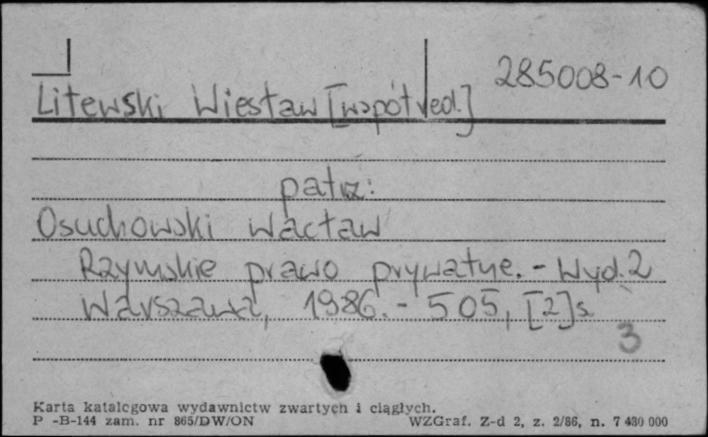 285008-10
Litewski Wiesław [współred.]
patrz:
Osuchowski Wacław
Rzymskie prawo prywatne. - Wyd. 2
Warszawa, 1986. - 505, [2] s.
3
Karta katalogowa wydawnictw zwartych i ciągłych.
P -B-144 zam. nr 865/DW/ON WZGraf. Z-d 2, z. 2/86, n. 7 430 000